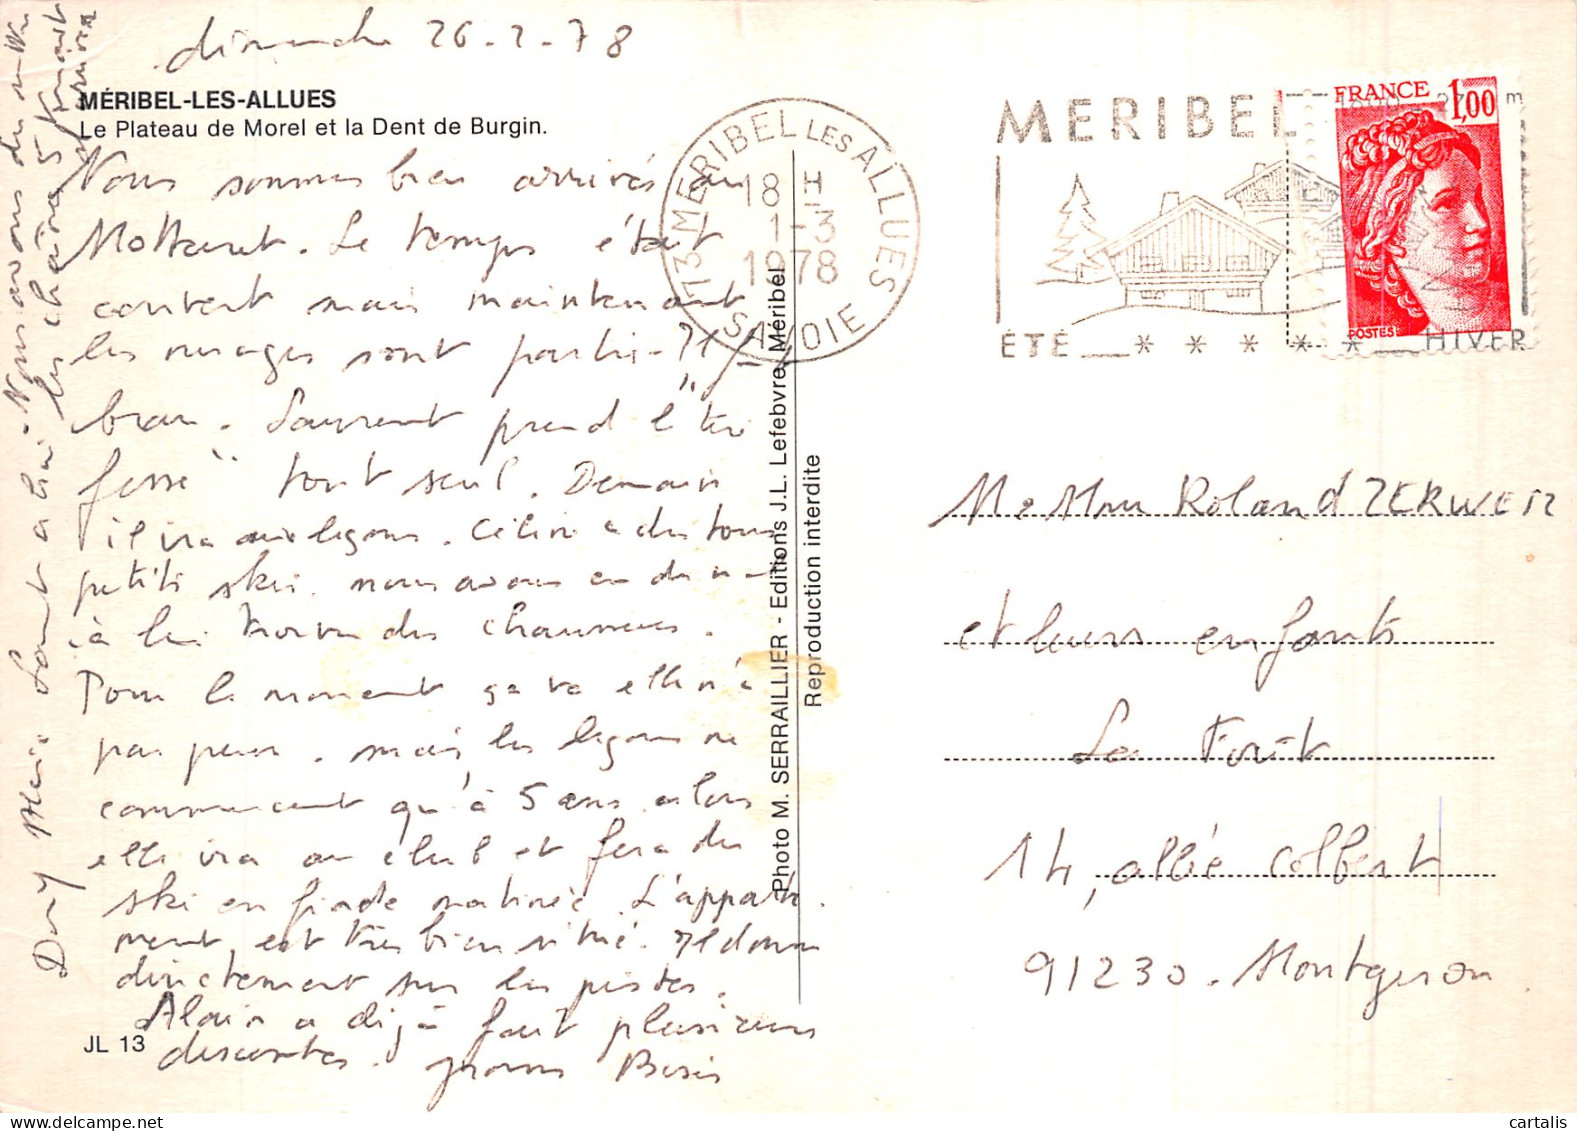 dimanche 26-2-78
MÉRIBEL-LES-ALLUES
Le Plateau de Morel et la Dent de Burgin.
Nous sommes bien arrivés au
Mottaret. Le temps était
couvert mais maintenant
les nuages sont partis. Il f
beau. Laurent prend le "téé
fesse" tout seul. Demain
il ira aux leçons. Céline a des tous
petits skis. nous avons eu du m
à lui trouver des chaussures.
Pour le moment ça va elle n'a
pas peur. mais les leçons ne
commencent qu'à 5 ans alors
elle ira au club et fera du
ski en fin de matinée. L'apparte
ment est très bien situé. Il donne
directement sur les pistes.
Alain a déjà fait plusieurs
descentes. Bises
JL 13
Nous avons du mettre
les chaînes
Photo M. SERRAILLIER - Editions J.L. Lefebvre Méribel
Reproduction interdite
73 MERIBEL LES ALLUES
18 H
1-3
1978
SAVOIE
MERIBEL
m
ÉTÉ * * * * * HIVER
FRANCE 1,00
POSTES
Mr et Mme Roland ZERWER
et leurs enfants
La Forêt
14, allée Colbert
91230. Montgeron
cartalis